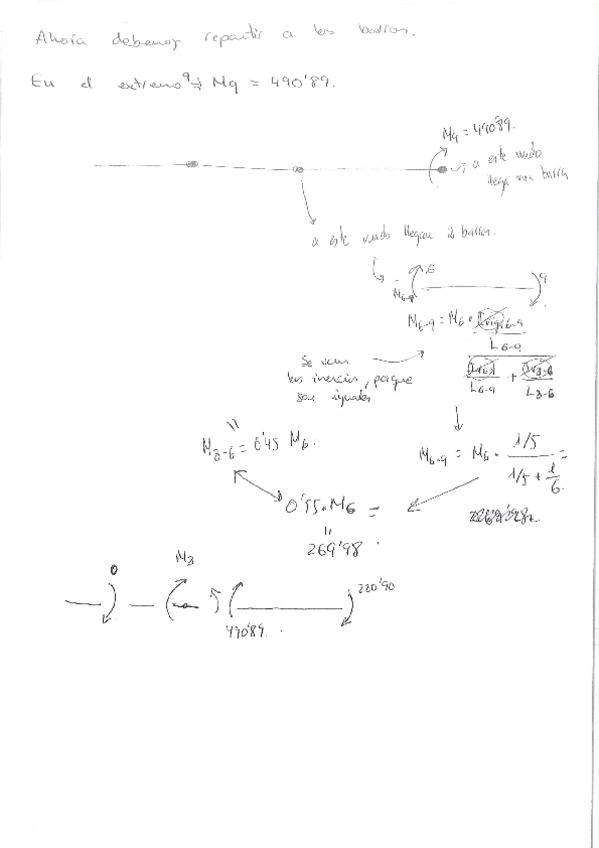 Ahora debemos repartir a las barras.
En el extremo 9 → M9 = 490'89.
M9 = 490'89.
a este nudo
llega una barra
a este nudo llegan 2 barras.
6
9
M6-9
M6-9 = M6 · Iviga6-9
L6-9
L6-9 + L3-6
Se van
las inercias, porque
son iguales
M3-6 = 0'45 M6.
M6-9 = M6 · 1/5 =
1/5 + 1/6
0'55·M6 =
269'98
0
M3
220'90
490'89.